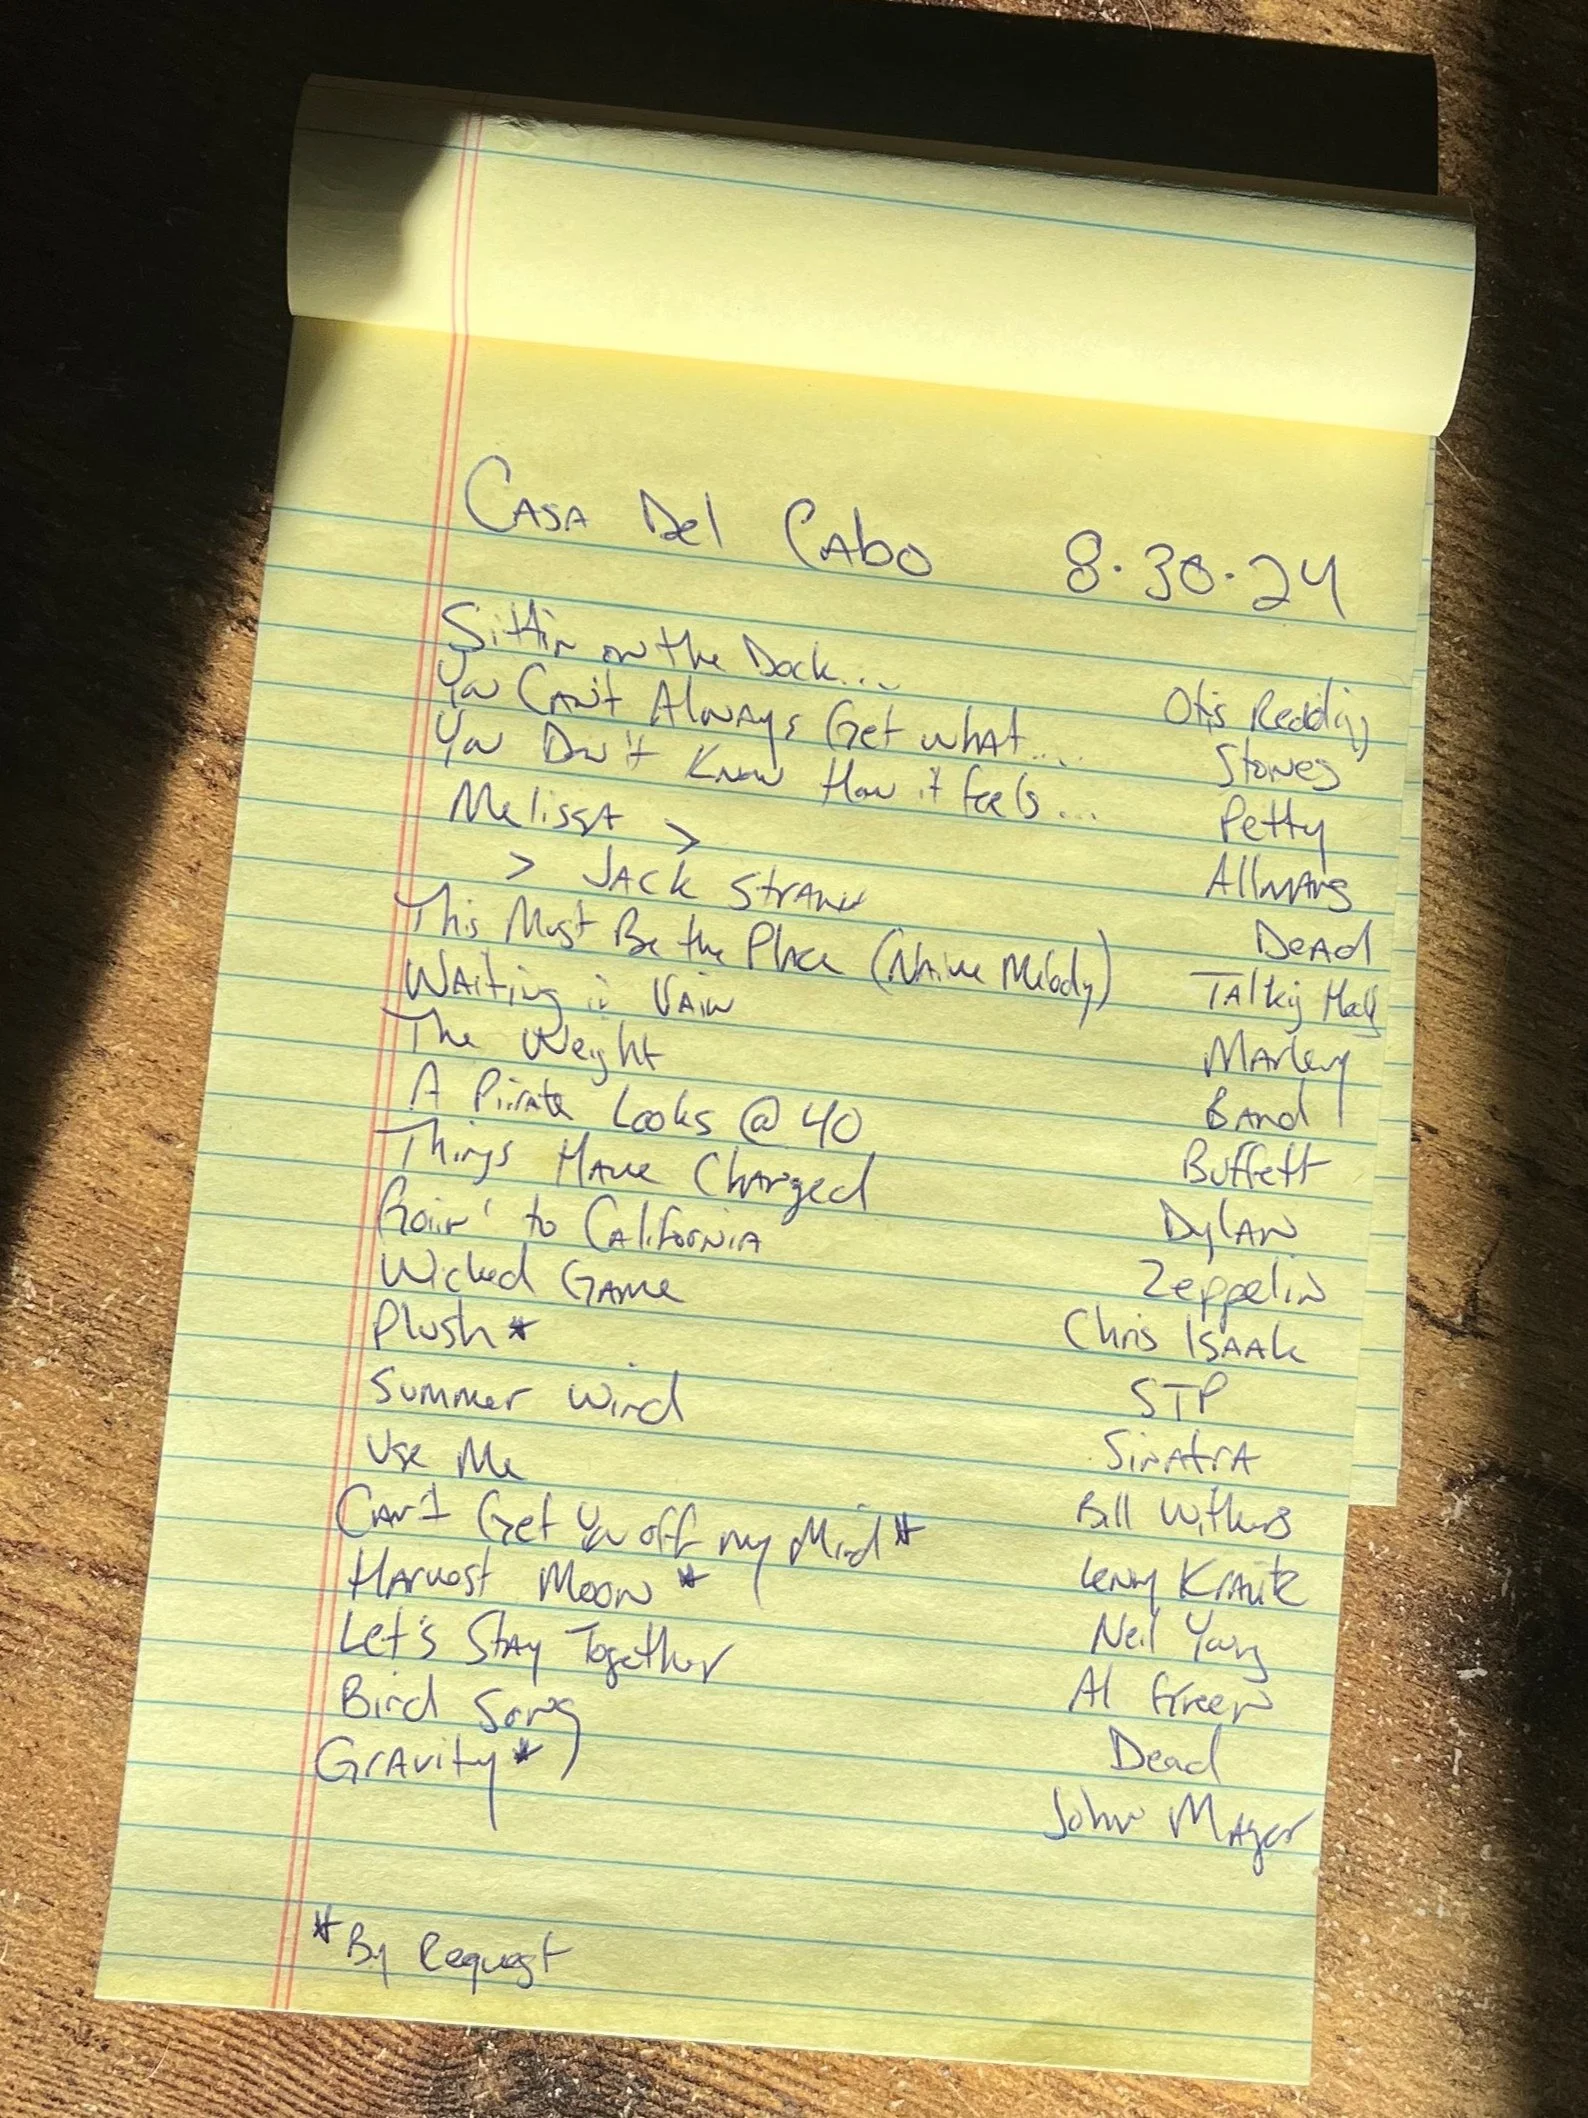 Casa Del Cabo 8.30.24
Sittin on the Dock... Otis Redding
You Can't Always Get what.... Stones
You Don't Know How it feels... Petty
Melissa > Allmans
> Jack Straw Dead
This Must Be the Place (Naive Melody) Talking Heads
Waiting in Vain Marley
The Weight Band
A Pirate Looks @ 40 Buffett
Things Have Changed Dylan
Goin' to California Zeppelin
Wicked Game Chris Isaak
Plush* STP
Summer Wind Sinatra
Use Me Bill Withers
Can't Get You off my Mind* Lenny Kravitz
Harvest Moon* Neil Young
Let's Stay Together Al Green
Bird Song Dead
Gravity* John Mayer
*By Request